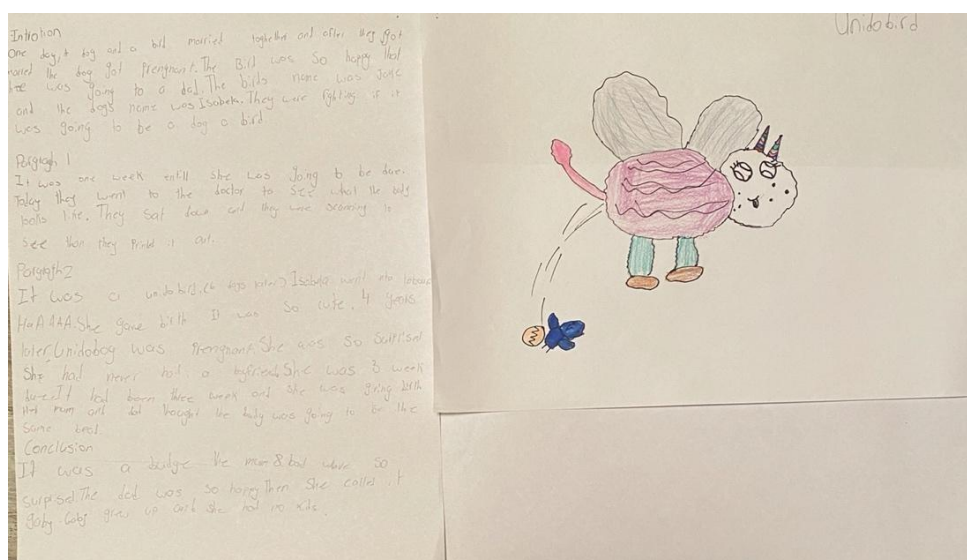 Introtion
One day, A dog and a bird married toghether and after they got
married the dog got Prengnant. The Bird was so happy that
was going to a dad. The birds name was Jake
and the dogs name was Isabela. They were fighting if it
was going to be a dog a bird
Pargraph 1
It was one week entill she was going to be
Today they went to the doctor to see what the baby
looks like. They sat down and they were scanning it
see than they Printed it out.
Pargraph 2
It was a unidobird. (6 days later) Isabela went into
HAAAAA. She gave birth It was so cute. 4 years
later, Unidobog was Prengnant. She was so surprised
She had never had a boyfriend. She was 3 week
It had been three week and she was giving birth
Her mum and dad thought the baby was going to be the
same
Conclusion
It was a budge the mum & dad where so
surprised. The dad was so Then She called it
gaby. Gaby grew up and she had no kids.
Unidobird